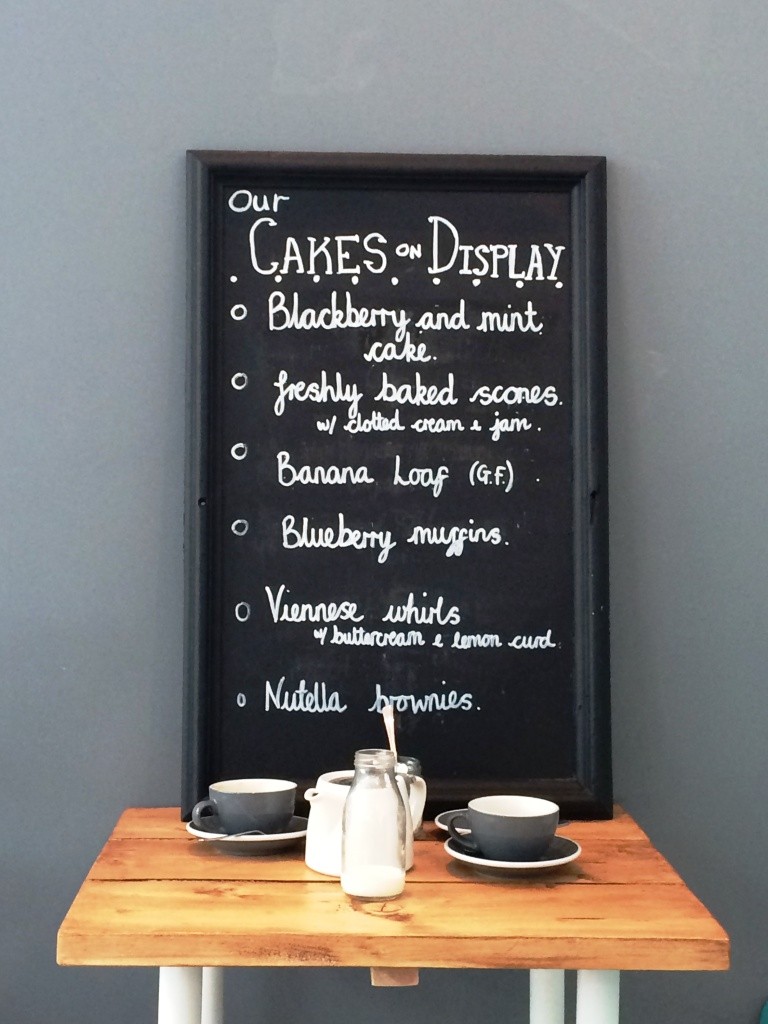 Our
CAKES ON DISPLAY
Blackberry and mint
cake.
freshly baked scones.
w/ clotted cream & jam.
Banana Loaf (G.F.)
Blueberry muffins.
Viennese whirls
w/ buttercream & lemon curd.
Nutella brownies.